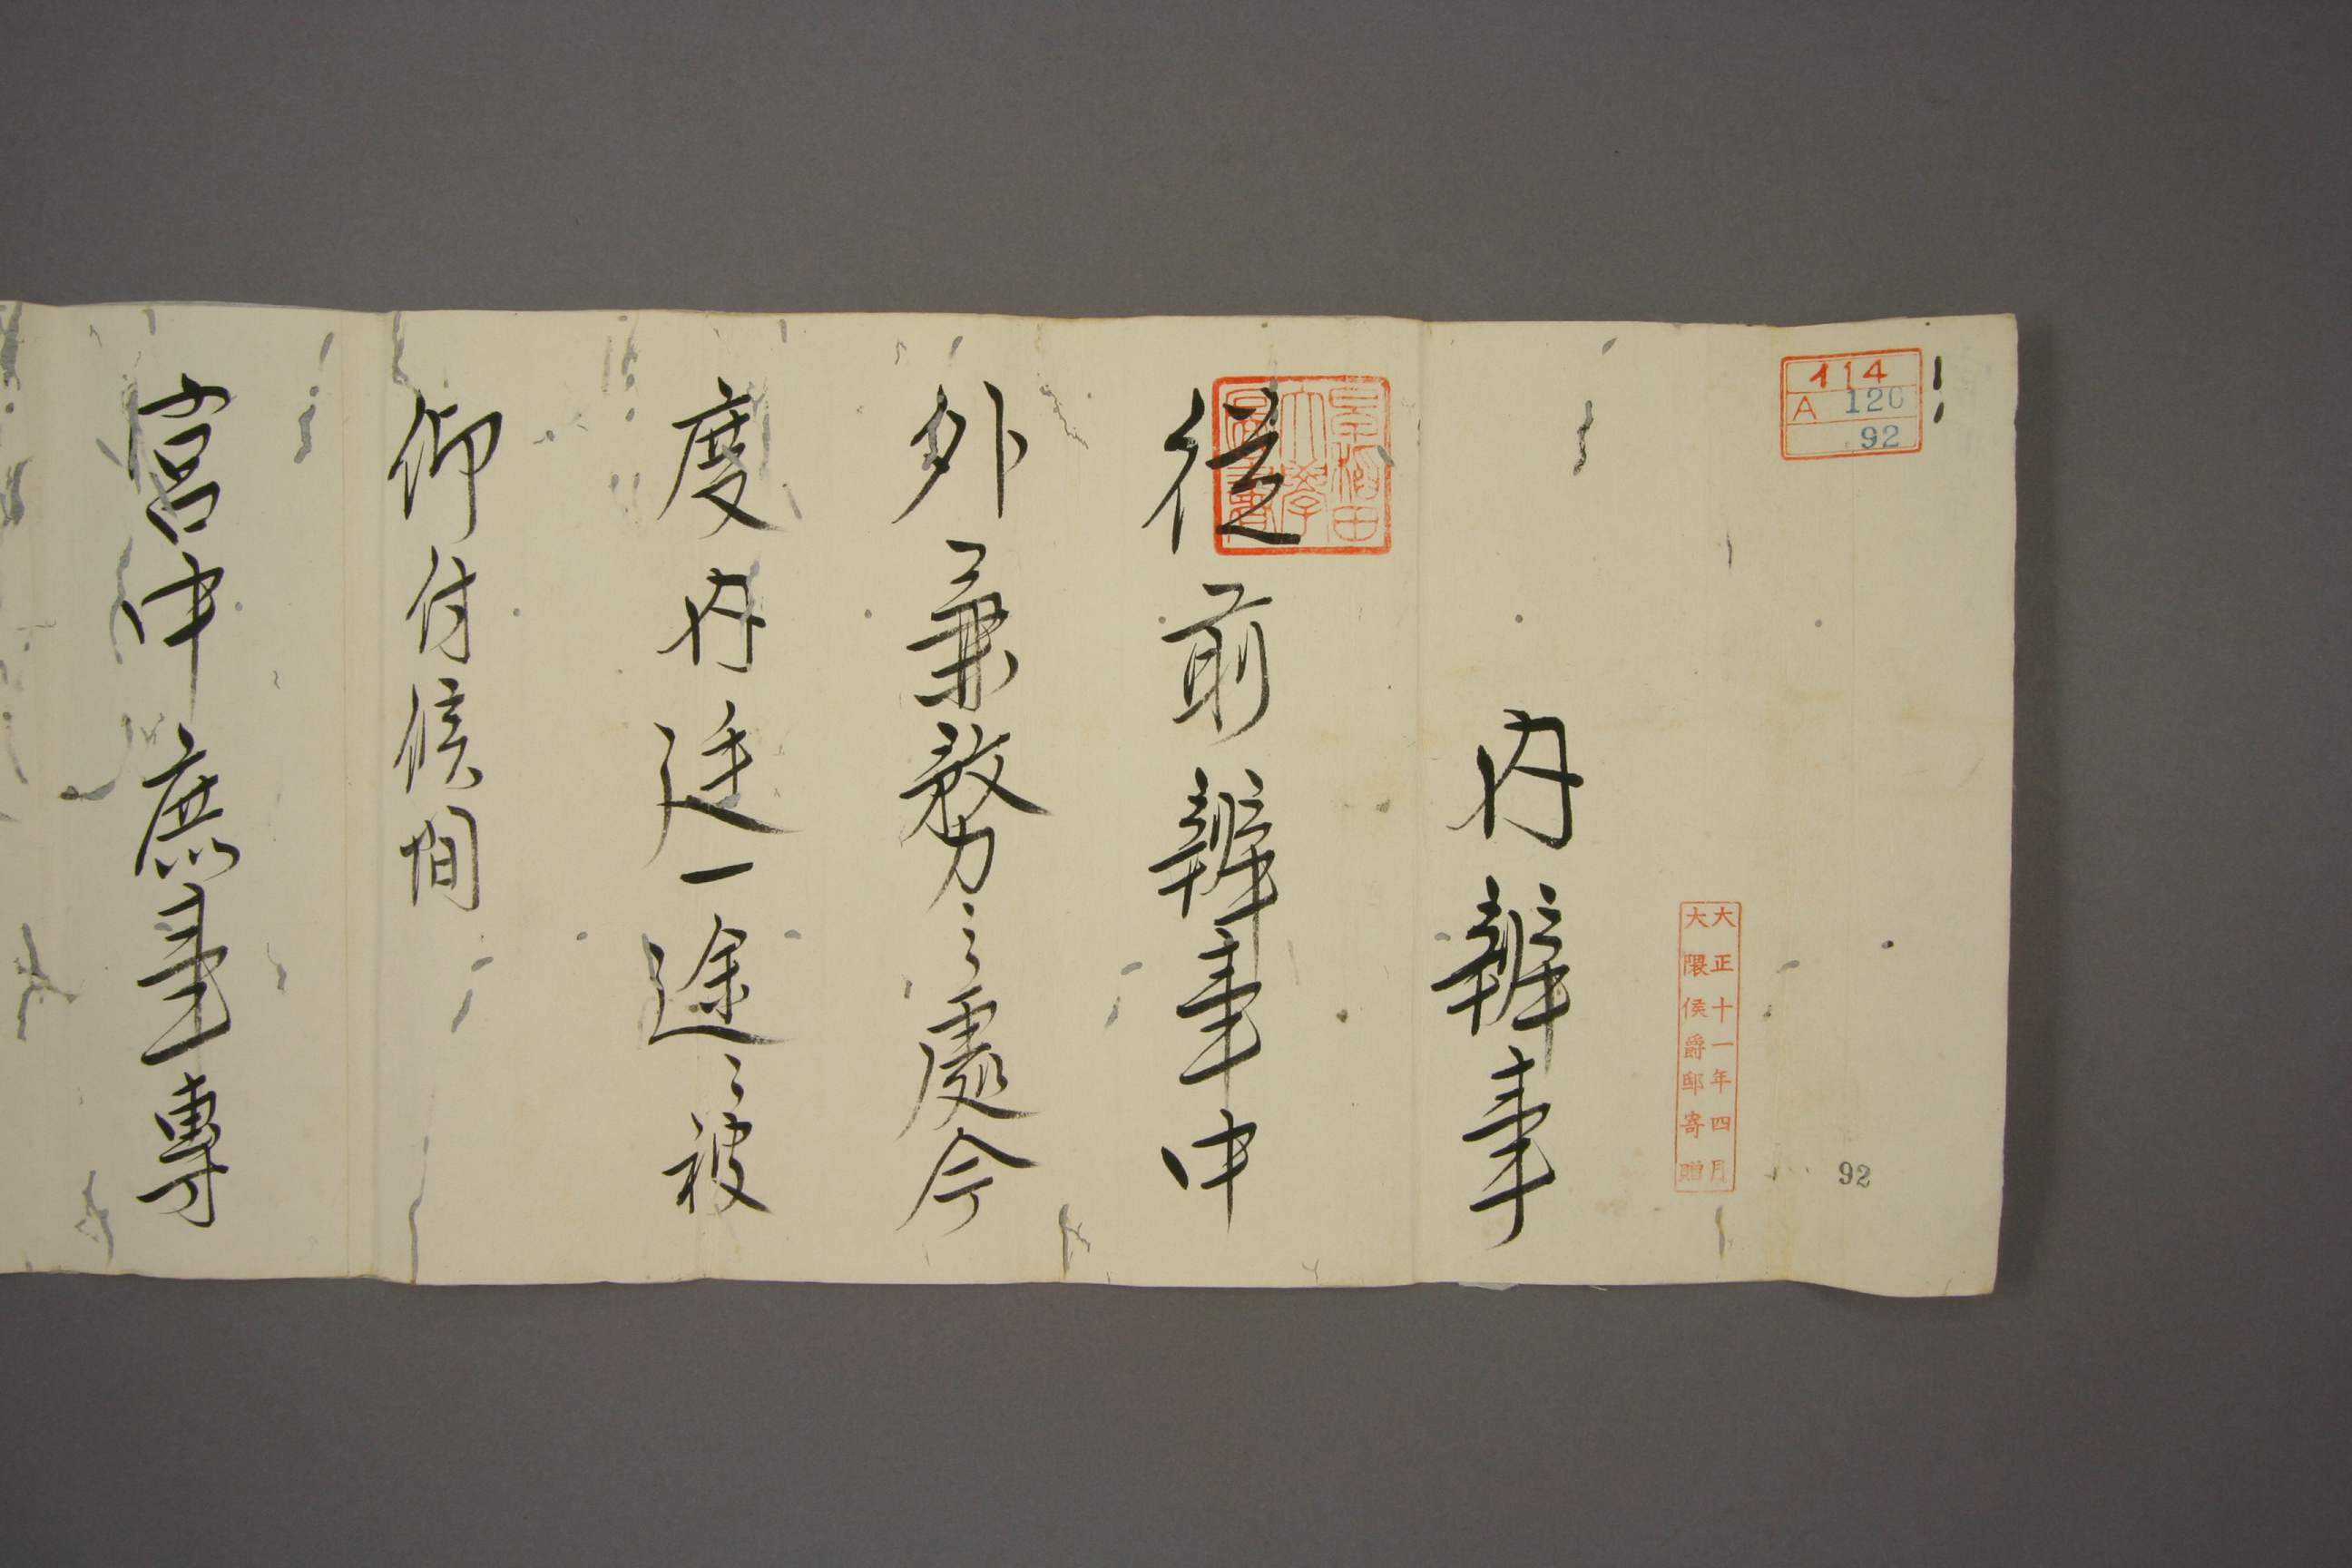 114
A 120
92
大正十一年四月
大隈侯爵邸寄贈
92
内辨事
早稲田
大學
圖書
従前辨事中
外兼務之處今
度内廷一途ニ被
仰付候間
宮中庶事専